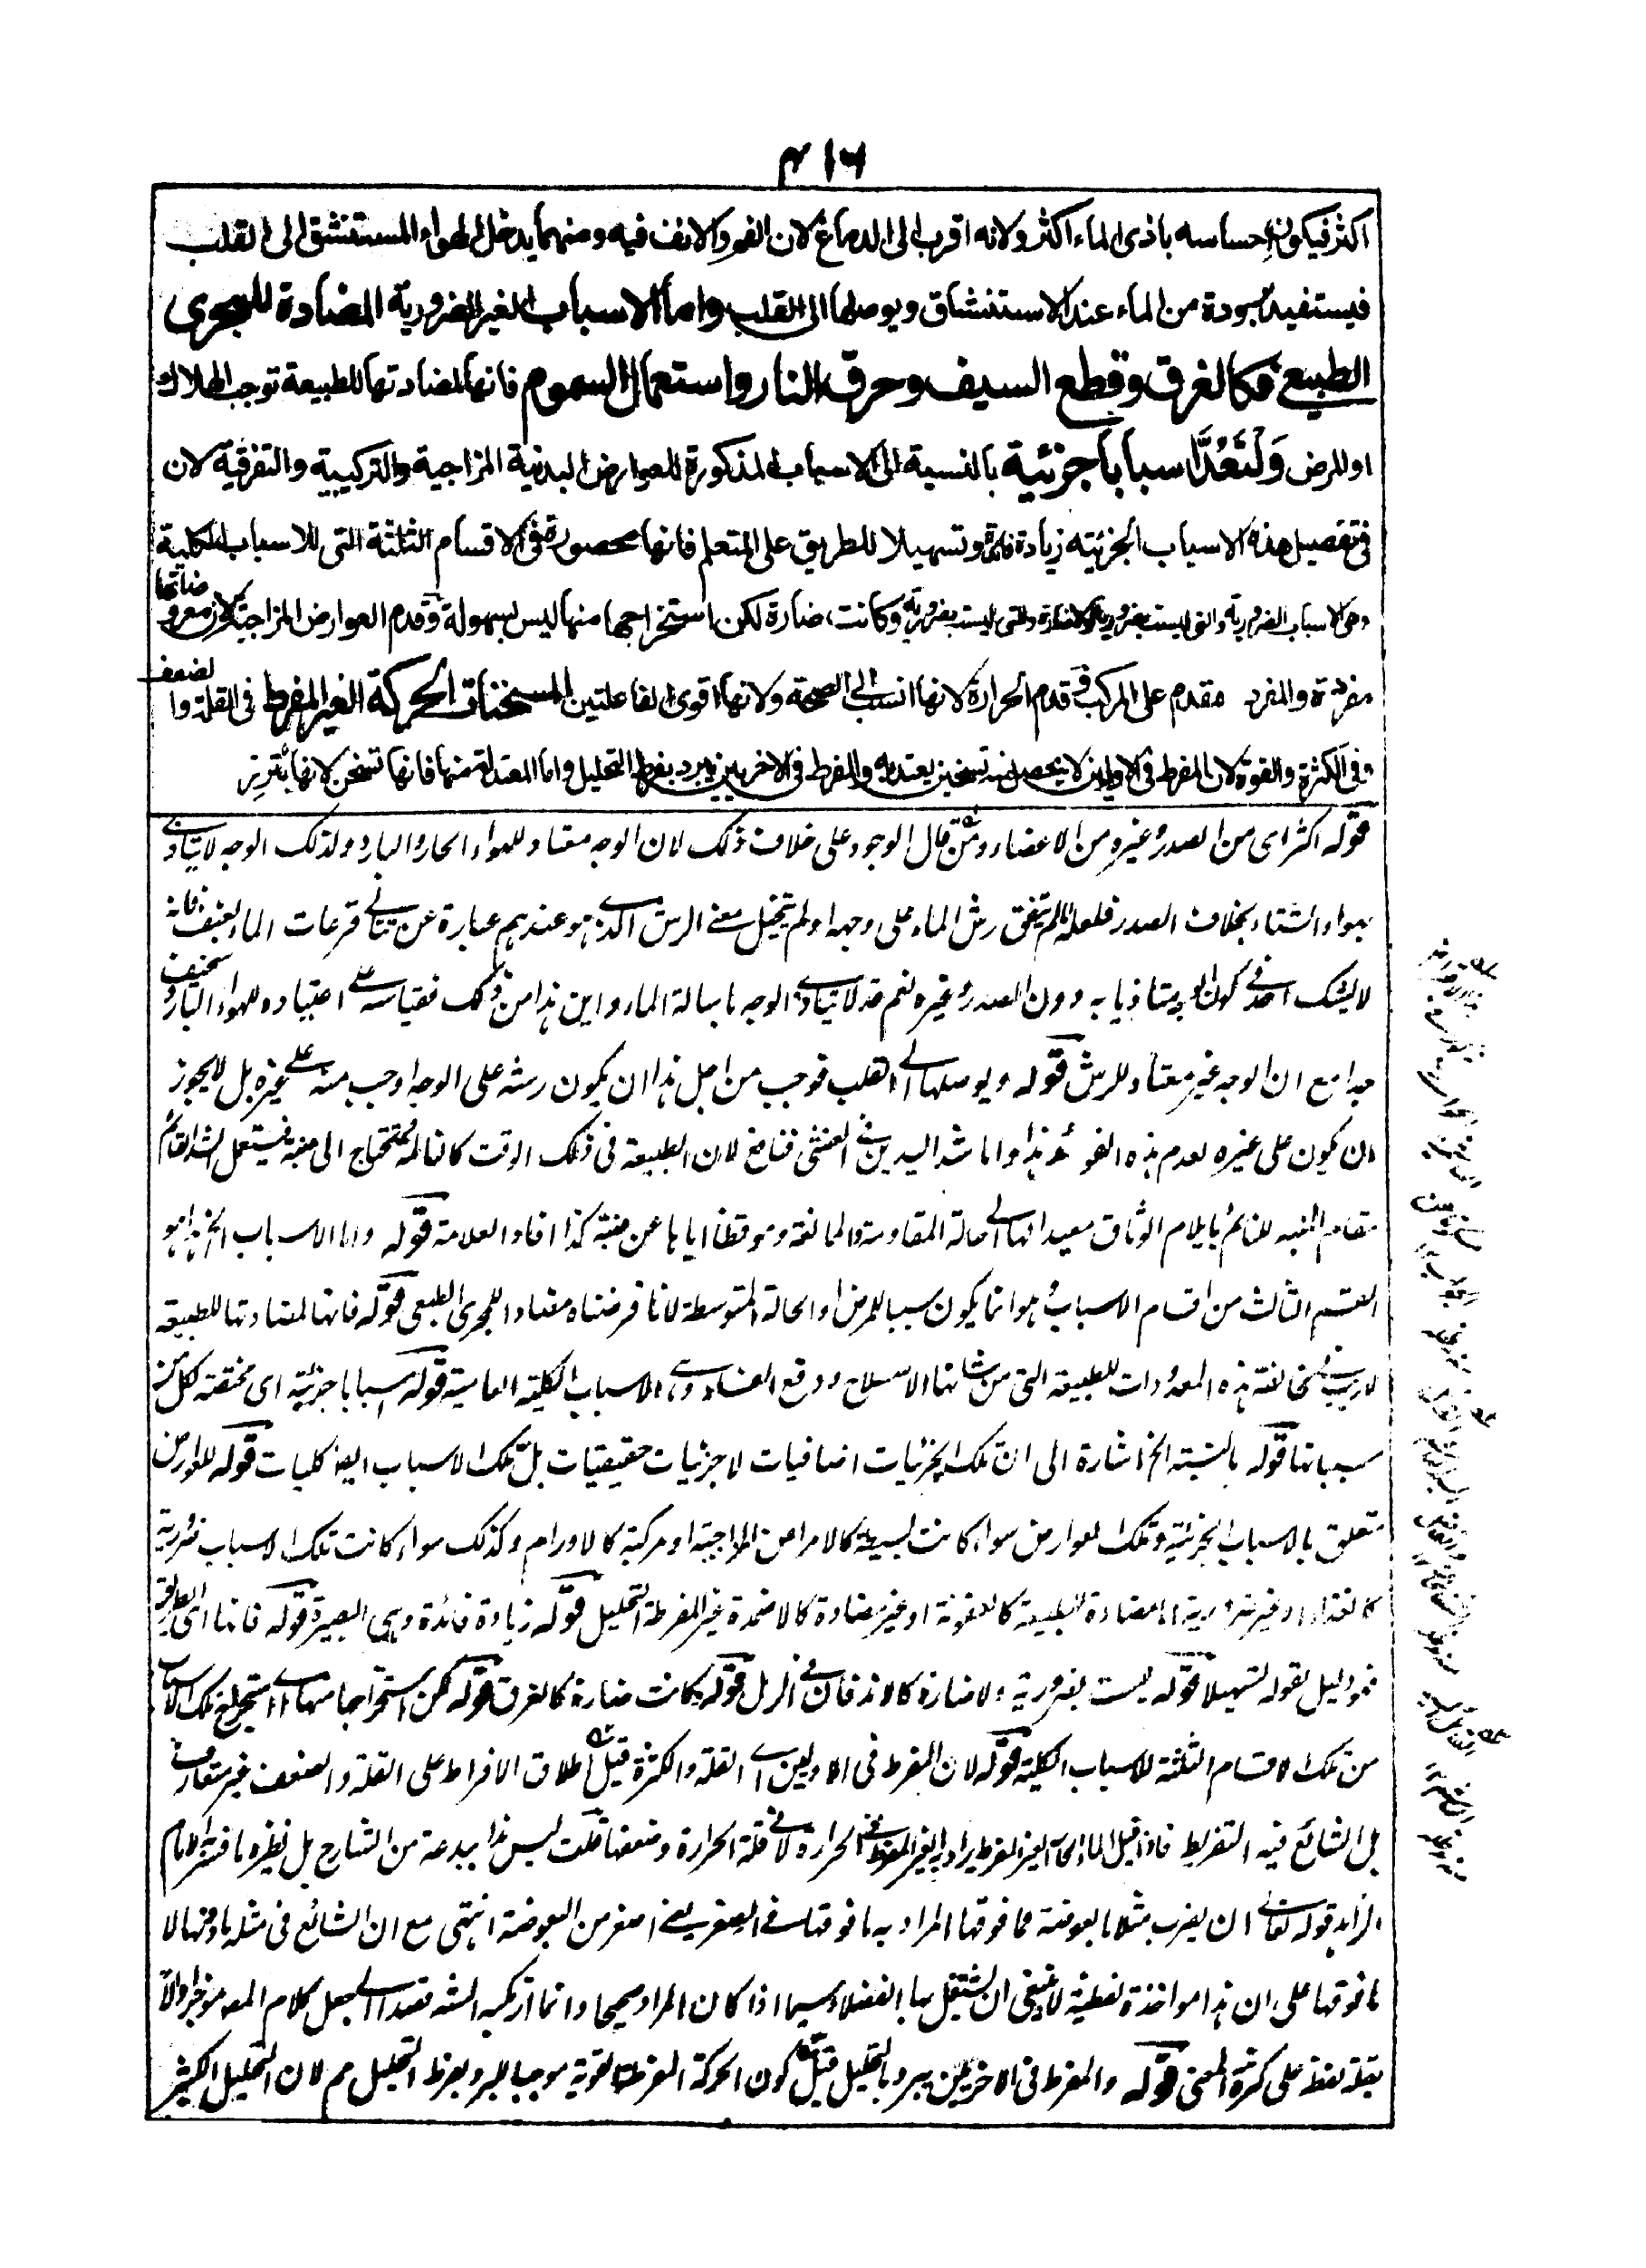 ٤١٦
اكثر فيكون احساسه باذى الماء اكثر ولانه اقرب الى الدماغ لان الفم والانف فيه ومنهما يدخل الهواء المستنشق الى القلب
فيستفيد برودة من الماء عند الاستنشاق ويوصلها الى القلب واما الاسباب الغير الضرورية المضادة للمجرى
الطبيعى فكالغرق وقطع السيف وحرق النار واستعمال السموم فانها لمضادتها للطبيعة توجب الهلاك
او المرض ولنعد اسبابا جزئية بالنسبة الى الاسباب المذكورة للعوارض البدنية المزاجية والتركيبية والتفرقية لان
فى تفصيل هذه الاسباب الجزئية زيادة فائدة وتسهيلا للطريق على المتعلم فانها محصورة فى الاقسام الثلثة التى للاسباب الكلية
وهى الاسباب الضرورية والتى ليست بضرورية ولا ضارة والتى ليست بضرورية وكانت ضارة لكن استخراجها منها ليس بسهولة وقدم العوارض المزاجية لان معروضاتها
مفردة والمفرد مقدم على المركب وقدم الحرارة لانها انسب الى الصحة ولانها اقوى الفاعلتين المسخنات الحركة الغير المفرط فى القلة والضعف
وفى الكثرة والقوة لان المفرط فى الاولين لا يحصل منه تسخين يعتد به والمفرط فى الاخريين يبرد بفرط التحليل واما المعتدلة منها فانها تسخن لانها تثير
قوله اكثر اى من الصدر وغيره من الاعضاء ومن قال الوجود على خلاف ذلك لان الوجه معتاد للهواء الحار والبارد ولذلك الوجه لا يتاذى
بهواء الشتاء بخلاف الصدر فلعله لم يتفق رش الماء على وجهه او لم يتخيل معنى الرش الذى هو عندهم عبارة عن تتالى قرعات الماء بعنف فانه
لا يشك احد فى كون الوجه متاذيا به دون الصدر وغيره نعم قد لا يتاذى الوجه باسالة الماء واين هذا من ذلك فقياسه على اعتياده للهواء البارد سخيف
جدا مع ان الوجه غير معتاد للرش قوله ويوصلها الى القلب فوجب من اجل هذا ان يكون رشه على الوجه اوجب منه على غيره بل لا يجوز
ان يكون على غيره لعدم هذه الفوائد هذا واما شد اليدين فى الغشى فنافع لان الطبيعة فى ذلك الوقت كالنائمة تحتاج الى منبه فيستعمل الشد القائم
مقام المنبه للنائم بايلام الوثاق معيدا لها الى حالة المقاومة والمانعة وموقظا اياها عن غفلة كذا افاد العلامة قوله واما الاسباب الخ هذا هو
القسم الثالث من اقسام الاسباب وهو انما يكون سببا للمرض او الحالة المتوسطة لانا فرضناه مضادا للمجرى الطبعى قوله فانها لمضادتها للطبيعة
لا ريب فى مخالفة هذه المعدودات للطبيعة التى من شانها الاصلاح ودفع الفساد وهى الاسباب الكلية العامية قوله اسبابا جزئية اى مختصة لكل من
مسبباتها قوله بالنسبة الخ اشارة الى ان تلك الجزئيات اضافيات لا جزئيات حقيقيات بل تلك الاسباب ايضا كليات قوله للعوارض
متعلق بالاسباب الجزئية وتلك العوارض سواء كانت بسيطة كالامراض المزاجية او مركبة كالاورام وكذلك سواء كانت تلك الاسباب ضرورية
كالغذاء او غير ضرورية اما مضادة للطبيعة كالعفونة او غير مضادة كالاضمدة غير المفرطة التحليل قوله زيادة فائدة وهى البصيرة قوله فانها اى
فهو دليل لقوله تسهيلا قوله ليست بضرورية ولا ضارة كالاندفان فى الرمل قوله وكانت ضارة كالغرق قوله لكن استخراجها منها اى استخراج تلك الاسباب
من تلك الاقسام الثلثة للاسباب الكلية قوله لان المفرط فى الاولين اى القلة والكثرة قيل اطلاق الافراط على القلة والضعف غير متعارف
بل الشائع فيه التفريط فاذا قيل الماء الحار الغير المفرط يراد به الغير المفرط فى الحرارة لا فى قلة الحرارة وضعفها قلت ليس هذا ببدعة من الشارح بل نظيره ما فسر به الامام
الزاهد قوله تعالى ان يضرب مثلا ما بعوضة فما فوقها المراد به ما فوقها فى الصغر يعنى اصغر من البعوضة انتهى مع ان الشائع فى مثله ما دونها لا
ما فوقها على ان هذا مواخذة لفظية لا ينبغى ان يشتغل بها الفضلاء سيما اذا كان المراد صحيحا وانما ارتكبه الشه قصدا الى جعل كلام المصه موجزا دالا
بقلة لفظه على كثرة المعنى قوله والمفرط فى الاخريين يبرد بالتحليل قيل كون الحركة المفرطة القوية موجبا للبرد بفرط التحليل مم لان التحليل الكثير